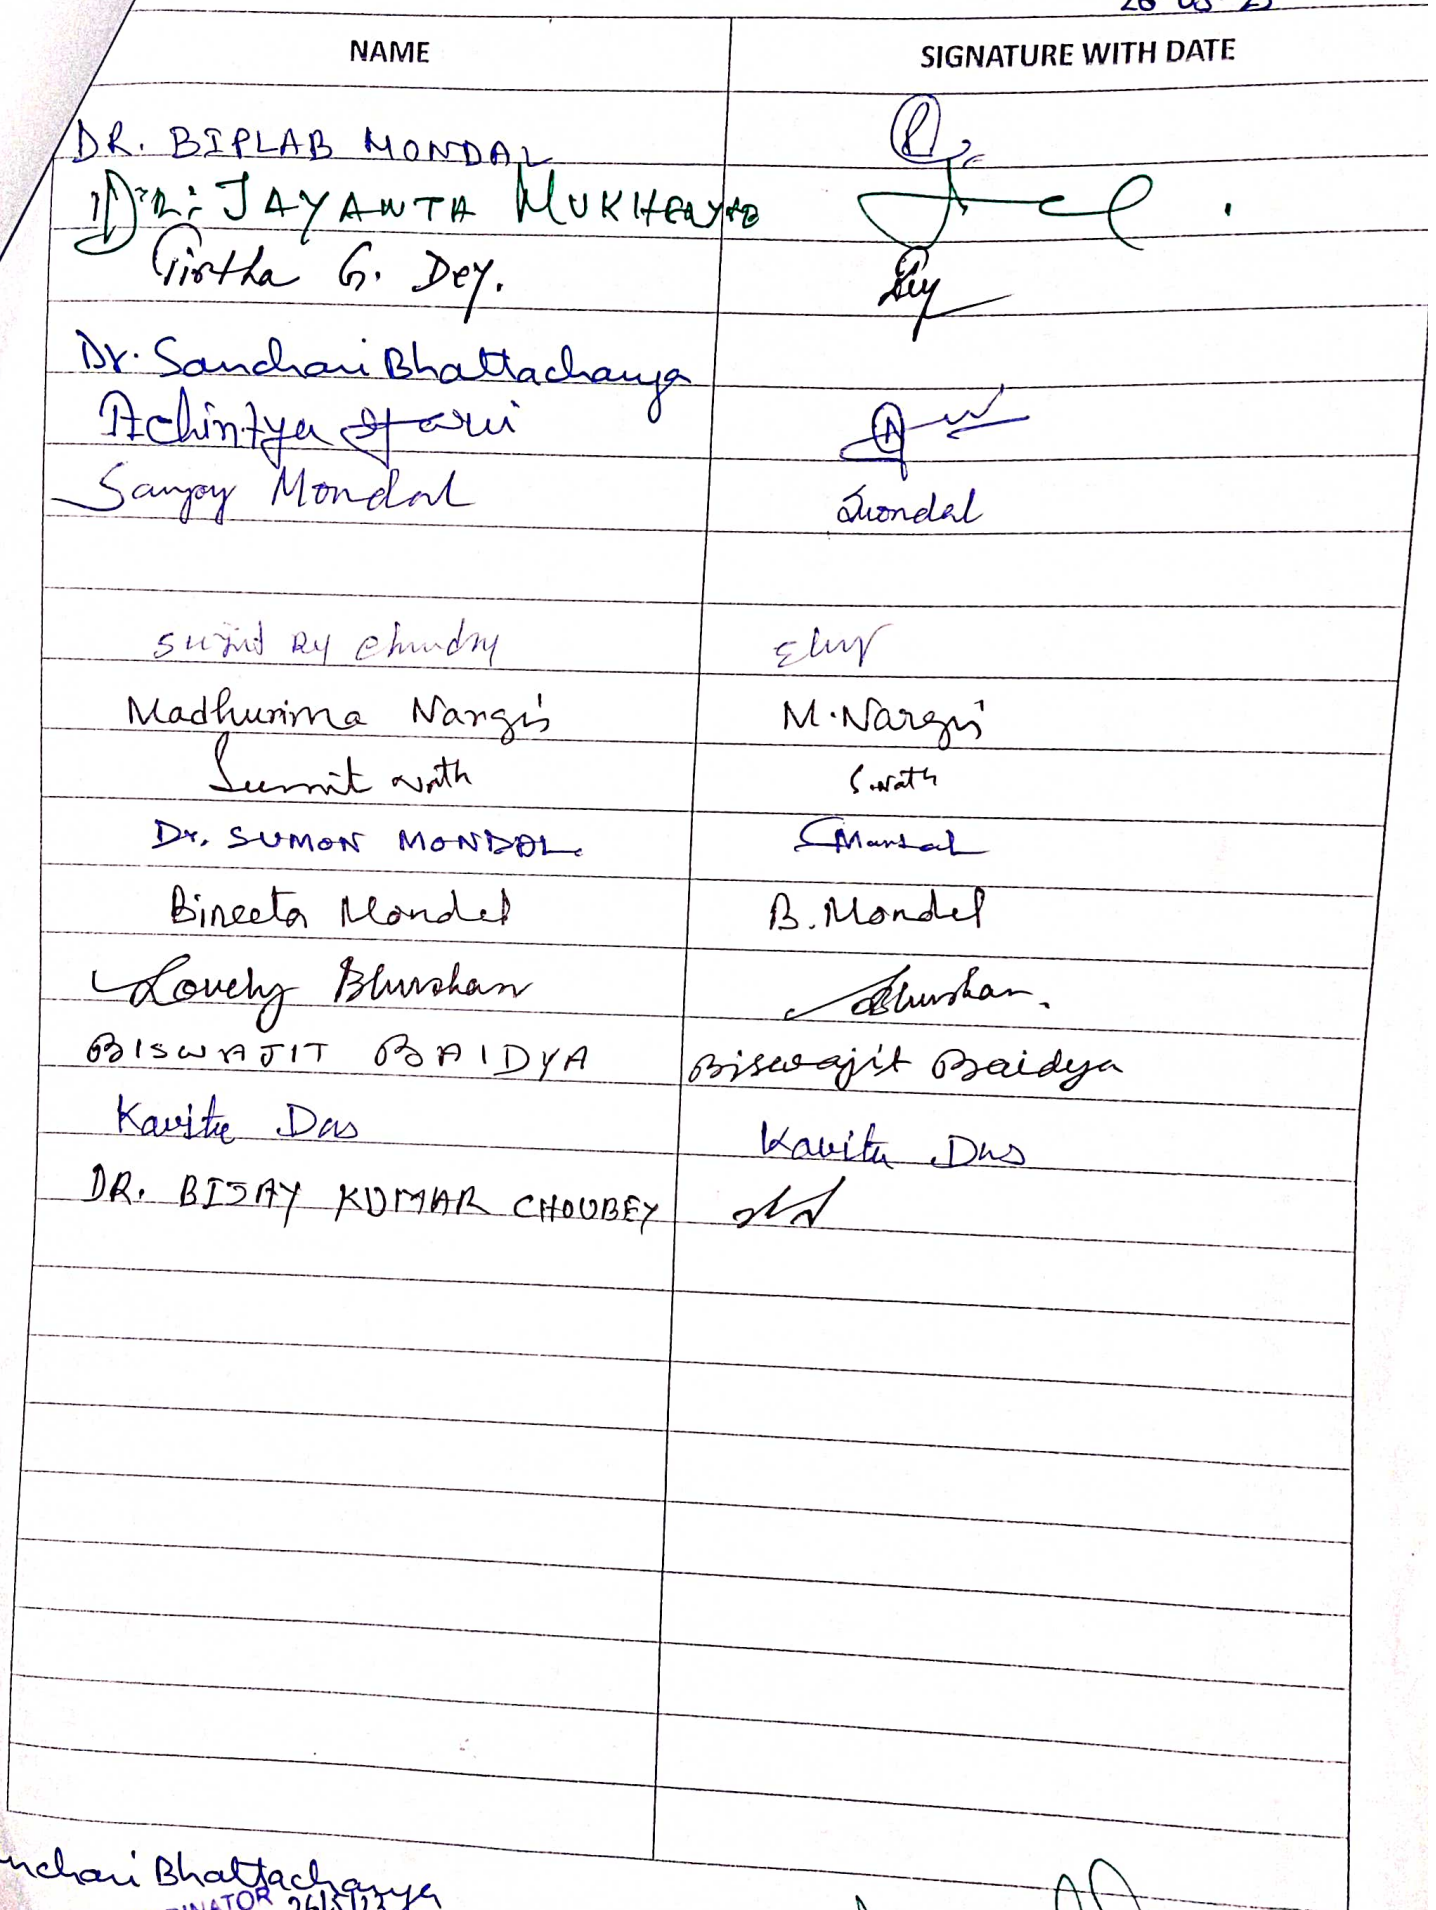 NAME SIGNATURE WITH DATE
DR. BIPLAB MONDAL
Dr: JAYANTA MUKHERJEE
Tirtha G. Dey. Dey
Dr. Sanchari Bhattacharya
Achintya
Sanjoy Mondal Smondal
Sujit Ry Chudry
Madhurima Nargis M. Nargis
Sumit Nath S. Nath
Dr. SUMON MONDOL. SMondal
Bineeta Mondal B. Mondal
Lovely Bhushan Bhushan.
BISWAJIT BAIDYA Biswajit Baidya
Kavita Das Kavita Das
DR. BIJAY KUMAR CHOUBEY
nchari Bhattacharya
INATOR 26/5/23